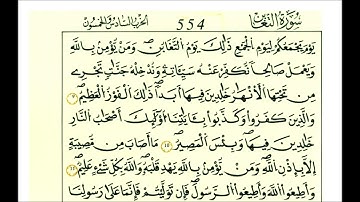 سورة التغابن 554 الحزب السادس والخمسون
يَوْمَ يَجْمَعُكُمْ لِيَوْمِ اِ۬لْجَمْعِ ذَٰلِكَ يَوْمُ اُ۬لتَّغَابُنِ وَمَنْ يُّومِنۢ بِاللَّهِ
وَيَعْمَلْ صَٰلِحاً نُّكَفِّرْ عَنْهُ سَيِّـَٔاتِهِۦ وَنُدْخِلْهُ جَنَّٰتٍ تَجْرِے
مِن تَحْتِهَا اَ۬لَانْهَٰرُ خَٰلِدِينَ فِيهَآ أَبَداً ذَٰلِكَ اَ۬لْفَوْزُ اُ۬لْعَظِيمُ ٩
وَالذِينَ كَفَرُواْ وَكَذَّبُواْ بِـَٔايَٰتِنَآ أُوْلَٰٓئِكَ أَصْحَٰبُ اُ۬لنّ۪ارِ
خَٰلِدِينَ فِيهَا وَبِيسَ اَ۬لْمَصِيرُ ١٠ مَآ أَصَابَ مِن مُّصِيبَةٍ
اِلَّا بِإِذْنِ اِ۬للَّهِ وَمَنْ يُّومِنۢ بِاللَّهِ يَهْدِ قَلْبَهُۥ وَاللَّهُ بِكُلِّ شَےْءٍ عَلِيمٌ ١١
وَأَطِيعُواْ اُ۬للَّهَ وَأَطِيعُواْ اُ۬لرَّسُولَ فَإِن تَوَلَّيْتُمْ فَإِنَّمَا عَلَىٰ رَسُولِنَا